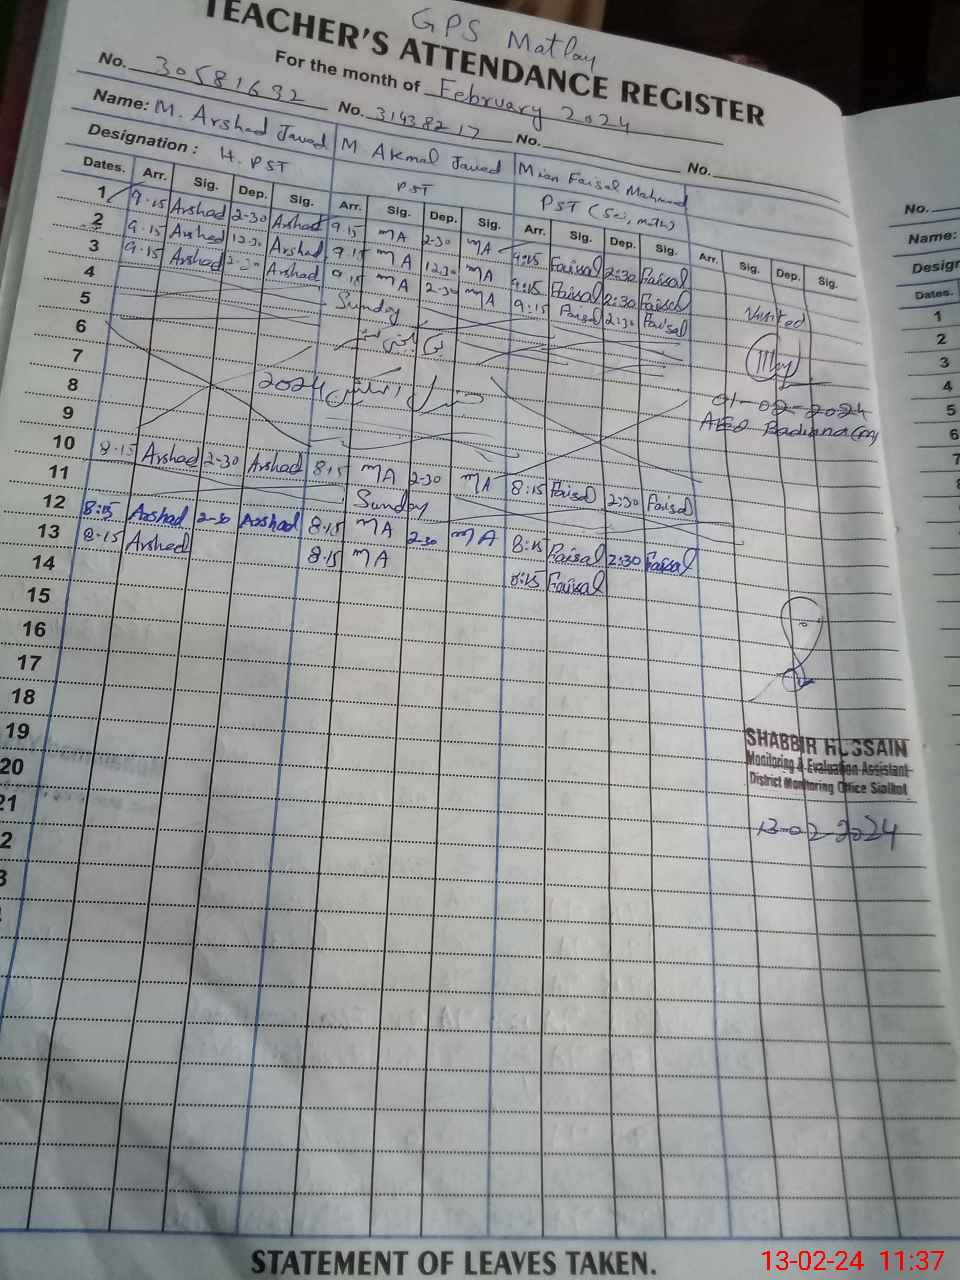 GPS Matlay
TEACHER'S ATTENDANCE REGISTER
For the month of February 2024
No. 30581632 No. 31438217 No. No.
Name: M. Arshad Javed M Akmal Javed Mian Faisal Mahmood
Designation: H. PST PST PST (Sci, math)
Dates. Arr. Sig. Dep. Sig. Arr. Sig. Dep. Sig. Arr. Sig. Dep. Sig. Arr. Sig. Dep. Sig.
1 9.15 Arshad 2-30 Arshad 9 15 MA 2-30 MA 9:15 Faisal 2:30 Faisal
2 9.15 Arshad 12.30 Arshad 9.15 MA 12.30 MA 9:15 Faisal 2:30 Faisal
3 9.15 Arshad 2-30 Arshad 9 15 MA 2-30 MA 9:15 Faisal 2:30 Faisal
4 Sunday
5
6
7 2024
8
9
10 8.15 Arshad 2-30 Arshad 8:15 MA 2-30 MA 8:15 Faisal 2:30 Faisal
11 Sunday
12 8:15 Arshad 2-30 Arshad 8:15 MA 2-30 MA 8:15 Faisal 2:30 Faisal
13 8-15 Arshad 8.15 MA 8:15 Faisal
14
15
16
17
18
19
20
21
2
3
Visited
01-02-2024
AEO Badiana
SHABBIR HUSSAIN
Monitoring & Evaluation Assistant
District Monitoring Office Sialkot
13-02-2024
STATEMENT OF LEAVES TAKEN.
No.
Name:
Design
Dates.
1
2
3
4
5
6
7
13-02-24 11:37